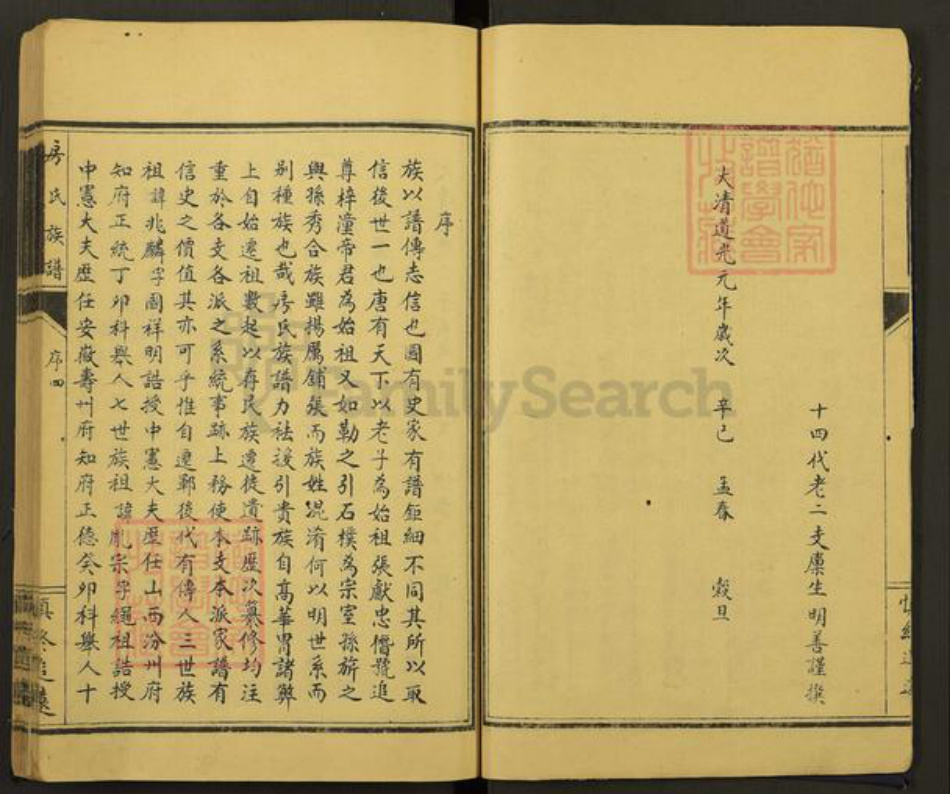 十四代老二支廪生明善謹撰
大清道光元年歲次 辛巳 孟春 穀旦
序
族以譜傳志信也國有史家有譜鉅細不同其所以取
信後世一也唐有天下以老子為始祖張獻忠僭號追
尊梓潼帝君為始祖又如勒之引石樸為宗室孫旂之
與孫秀合族雖揚厲鋪張而族姓混淆何以明世系而
別種族也哉房氏族譜力祛援引貴族自高華胄諸弊
上自始遷祖數起以存民族遷徙遺跡歷次纂修均注
重於各支各派之系統事跡上務使本支本派家譜有
信史之價值其亦可乎惟自遷鄆後代有傳人三世族
祖諱兆麟字國祥明誥授中憲大夫歷任山西汾州府
知府正統丁卯科舉人七世族祖諱胤宗字繩祖誥授
中憲大夫歷任安徽壽州府知府正德癸卯科舉人十
房氏族譜
序四
慎終追遠
FamilySearch